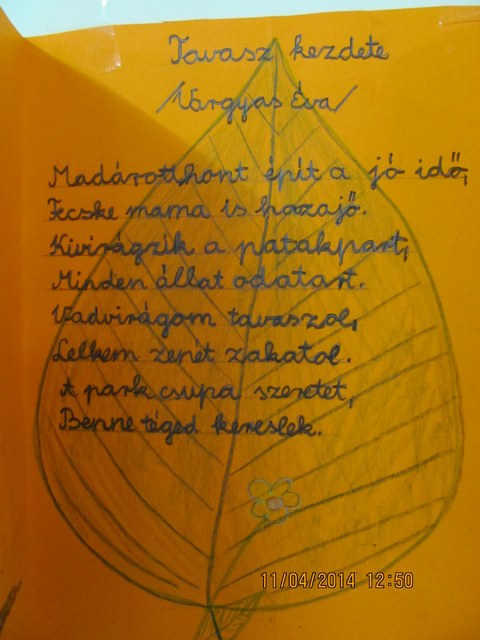 Tavasz kezdete
/Várgyas Éva/
Madárotthont épít a jó idő,
Fecske mama is hazajő.
Kivirágzik a patakpart,
Minden állat odatart.
Vadvirágom tavaszol,
Lelkem zenét zakatol.
A park csupa szeretet,
Benne téged kereslek.
11/04/2014 12:50